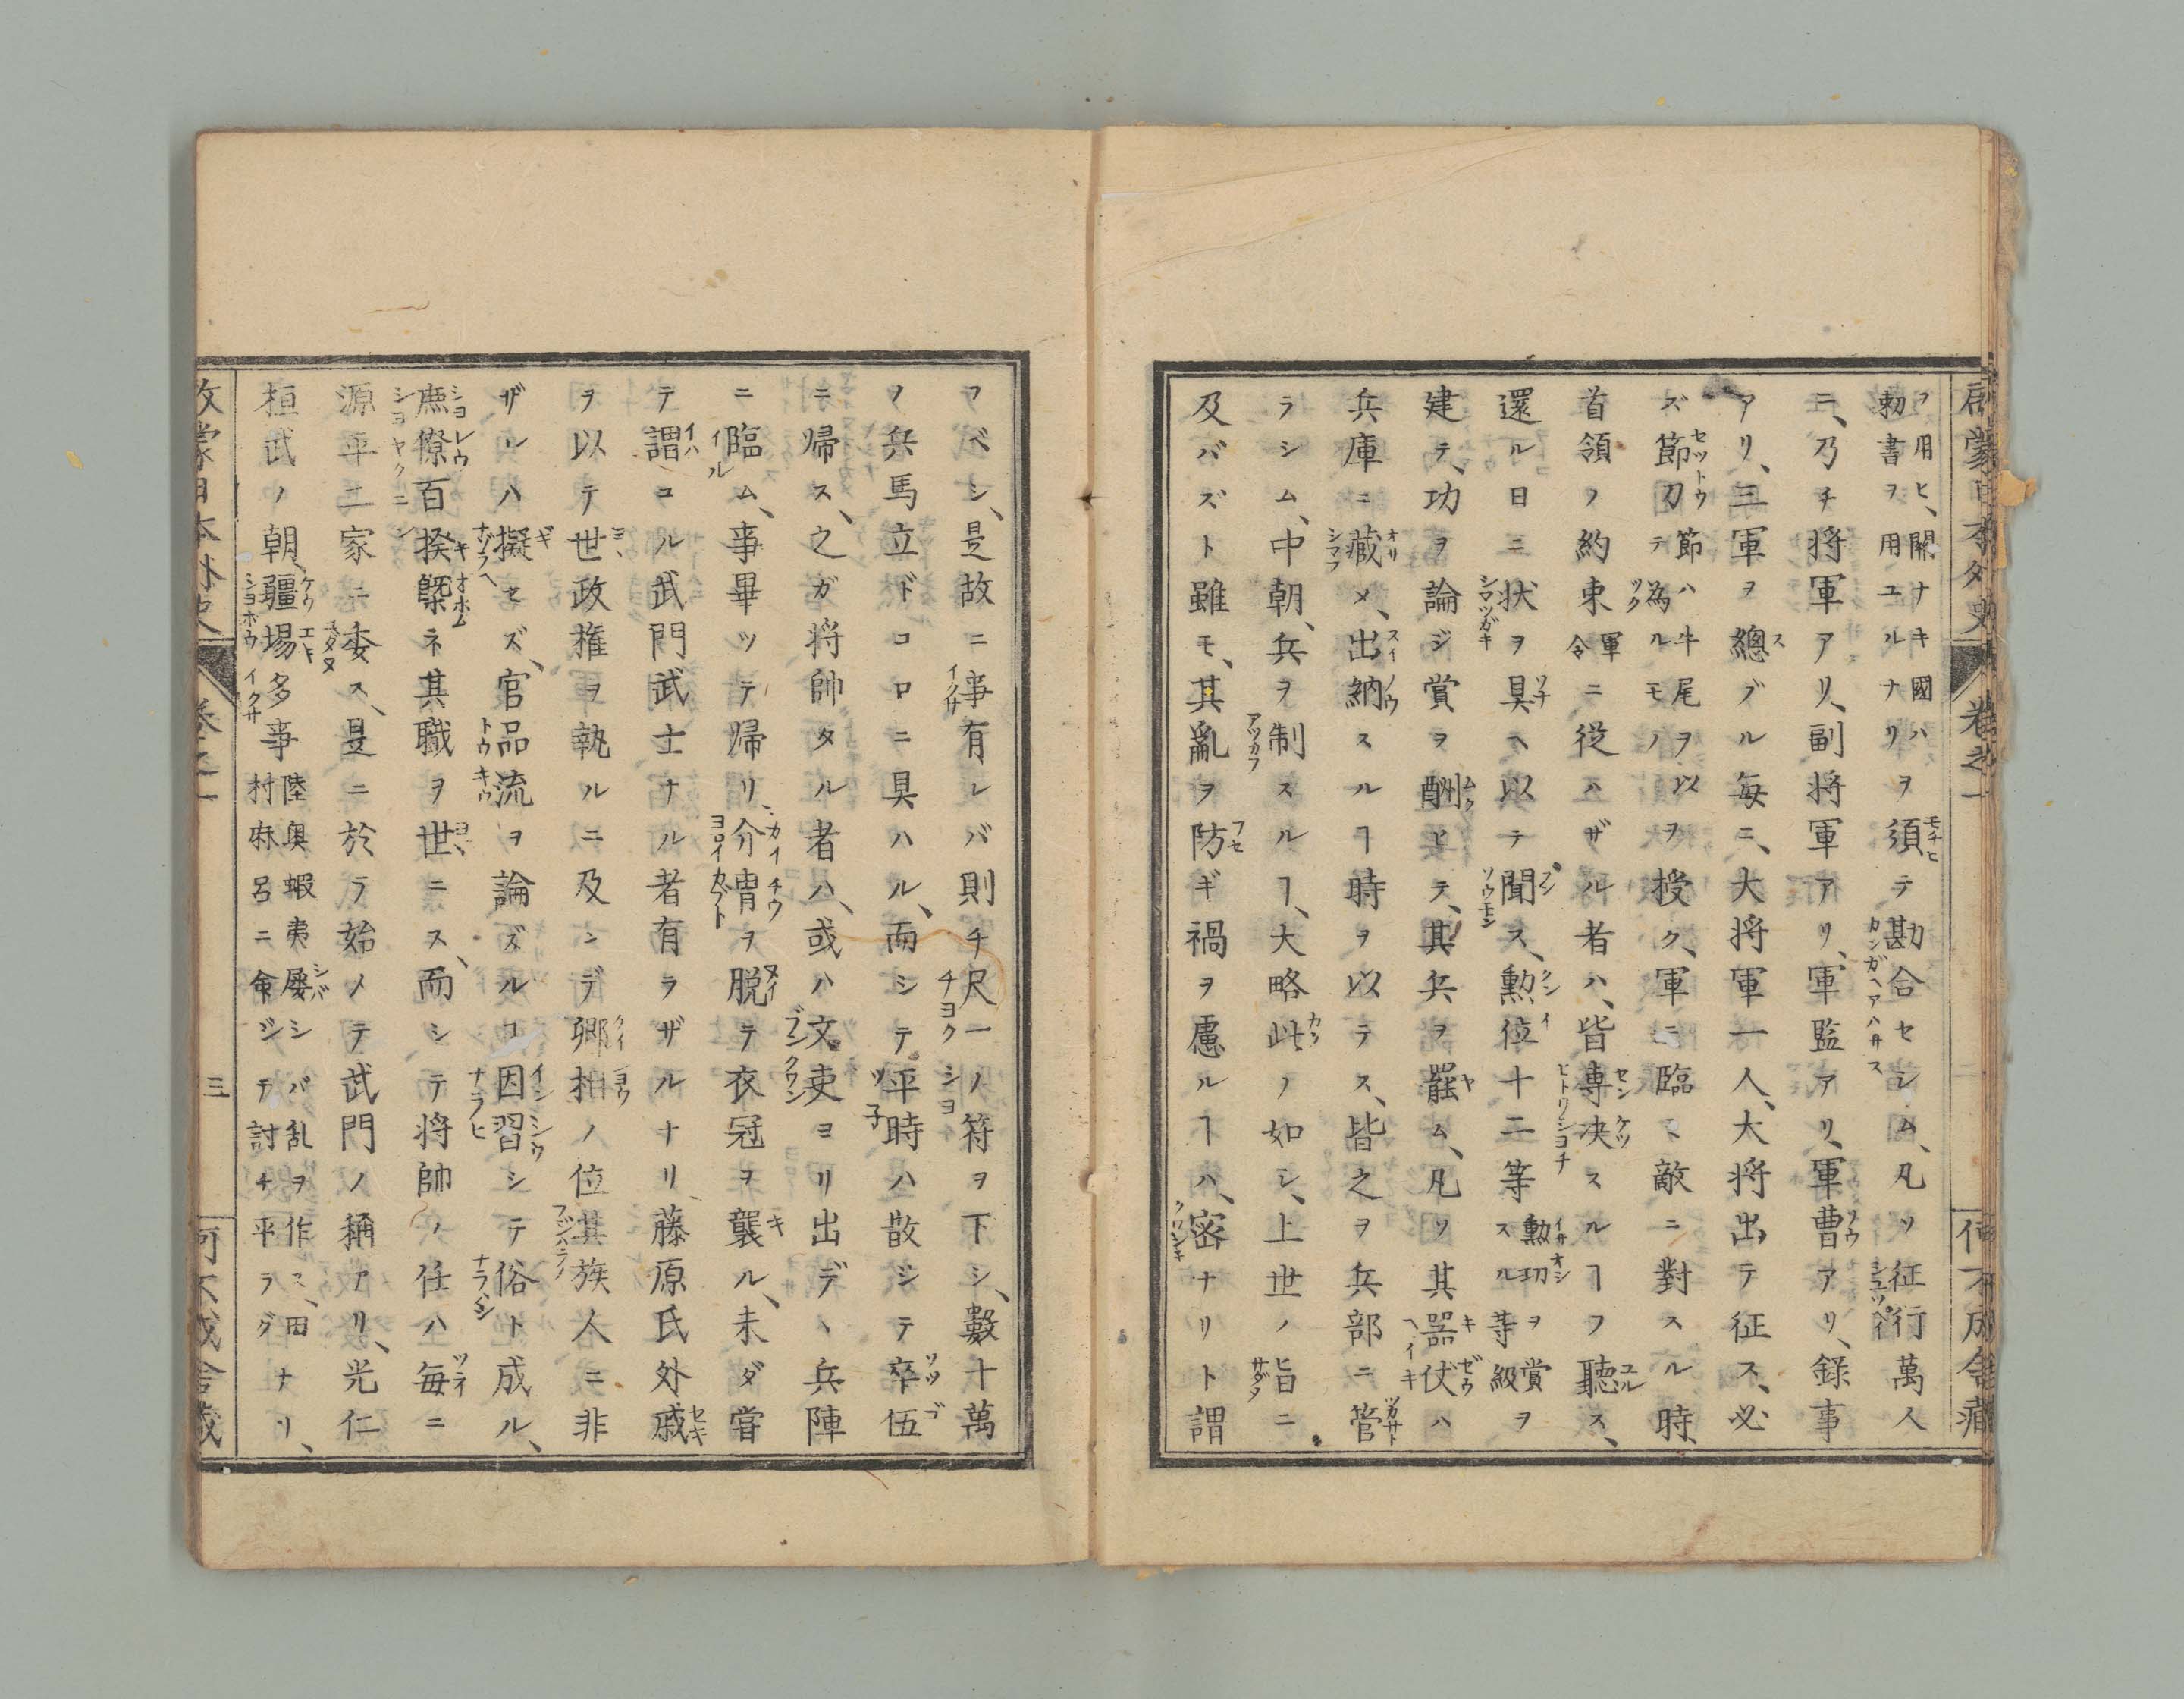 啓蒙日本外史 卷之一 二 何不成舎藏
ヲ用ヒ、關ナキ國ハ
勅書ヲ用ユルナリ
ヲ須テ勘合セシム、凡ソ征行萬人
ニ、乃チ将軍アリ、副将軍アリ、軍監アリ、軍曹アリ、録事
アリ、三軍ヲ總ブル毎ニ、大将軍一人、大将出テ征ス、必
ズ節刀
節ハ牛尾ヲ以
テ為ルモノ
ヲ授ク、軍ニ臨ミ敵ニ對スル時、
首領ノ約束
軍
令
ニ従ハザル者ハ、皆専决スルヿヲ聽ス、
還ル日ニ状ヲ具ヘ以テ聞ス、勲位十二等
勲功ヲ賞
スル等級ヲ
建テ、功ヲ論ジ賞ヲ酬ヒテ、其兵ヲ罷ム、凡ソ其器仗ハ
兵庫ニ藏メ、出納スルヿ時ヲ以テス、皆之ヲ兵部ニ管
ラシム、中朝、兵ヲ制スルヿ、大略此ノ如シ、上世ノ旨ニ
及バズト雖モ、其亂ヲ防ギ禍ヲ慮ルヿハ、密ナリト謂
フベシ、是故ニ事有レバ則チ尺一ノ符ヲ下シ、數十萬
ノ兵馬立ドコロニ具ハル、而シテ平時ハ散シテ卒伍
ニ帰ス、之ガ将帥タル者ハ、或ハ文吏ヨリ出デヽ兵陣
ニ臨ム、事畢ツテ帰リ、介冑ヲ脱テ衣冠ヲ襲ル、未ダ嘗
テ謂ユル武門武士ナル者有ラザルナリ、藤原氏外戚
ヲ以テ世政権ヲ執ルニ及ンデ卿相ノ位其族人ニ非
ザレハ擬セズ、官品流ヲ論ズルコ因習シテ俗ト成ル、
庶僚百揆槩ネ其職ヲ世ニス、而シテ将帥ノ任ハ毎ニ
源平二家ニ委ス、是ニ於ラ始メテ武門ノ稱アリ、光仁
桓武ノ朝、疆場多事
陸奥蝦夷屡シバ乱ヲ作ス、田
村麻呂ニ命ジテ討チ平ラグ
ナリ、
啓蒙日本外史 卷之一 三 何不成舎藏